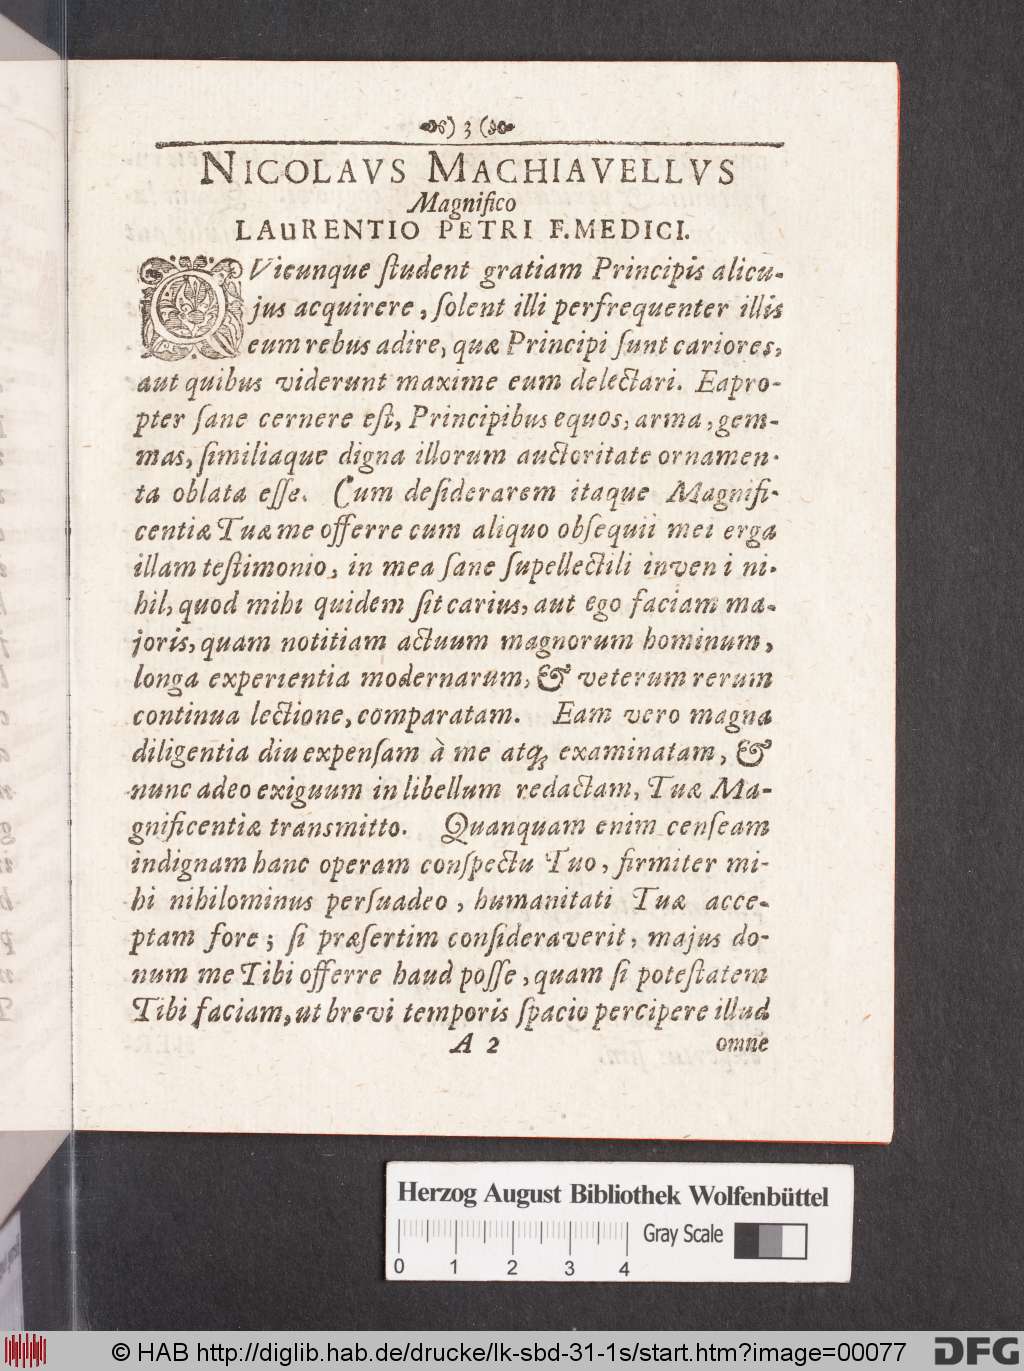 ) 3 (
NICOLAVS MACHIAVELLVS
Magnifico
LAuRENTIO PETRI F. MEDICI.
QVicunque ſtudent gratiam Principis alicu-
jus acquirere, ſolent illi perfrequenter illis
eum rebus adire, quæ Principi ſunt cariores,
aut quibus viderunt maxime eum delectari. Eapro-
pter ſane cernere eſt, Principibus equos, arma, gem-
mas, ſimiliaque digna illorum auctoritate ornamen-
ta oblata eſſe. Cum deſiderarem itaque Magnifi-
centiæ Tuæ me offerre cum aliquo obſequii mei erga
illam teſtimonio, in mea ſane ſupellectili inveni ni-
hil, quod mihi quidem ſit carius, aut ego faciam ma-
joris, quam notitiam actuum magnorum hominum,
longa experientia modernarum, & veterum rerum
continua lectione, comparatam. Eam vero magna
diligentia diu expenſam à me atq; examinatam, &
nunc adeo exiguum in libellum redactam, Tuæ Ma-
gnificentiæ transmitto. Quanquam enim cenſeam
indignam hanc operam conſpectu Tuo, firmiter mi-
hi nihilominus perſuadeo, humanitati Tuæ acce-
ptam fore; ſi præſertim conſideraverit, majus do-
num me Tibi offerre haud poſſe, quam ſi poteſtatem
Tibi faciam, ut brevi temporis ſpacio percipere illud
A 2 omne
Herzog August Bibliothek Wolfenbüttel
Gray Scale
0 1 2 3 4
© HAB http://diglib.hab.de/drucke/lk-sbd-31-1s/start.htm?image=00077
DFG